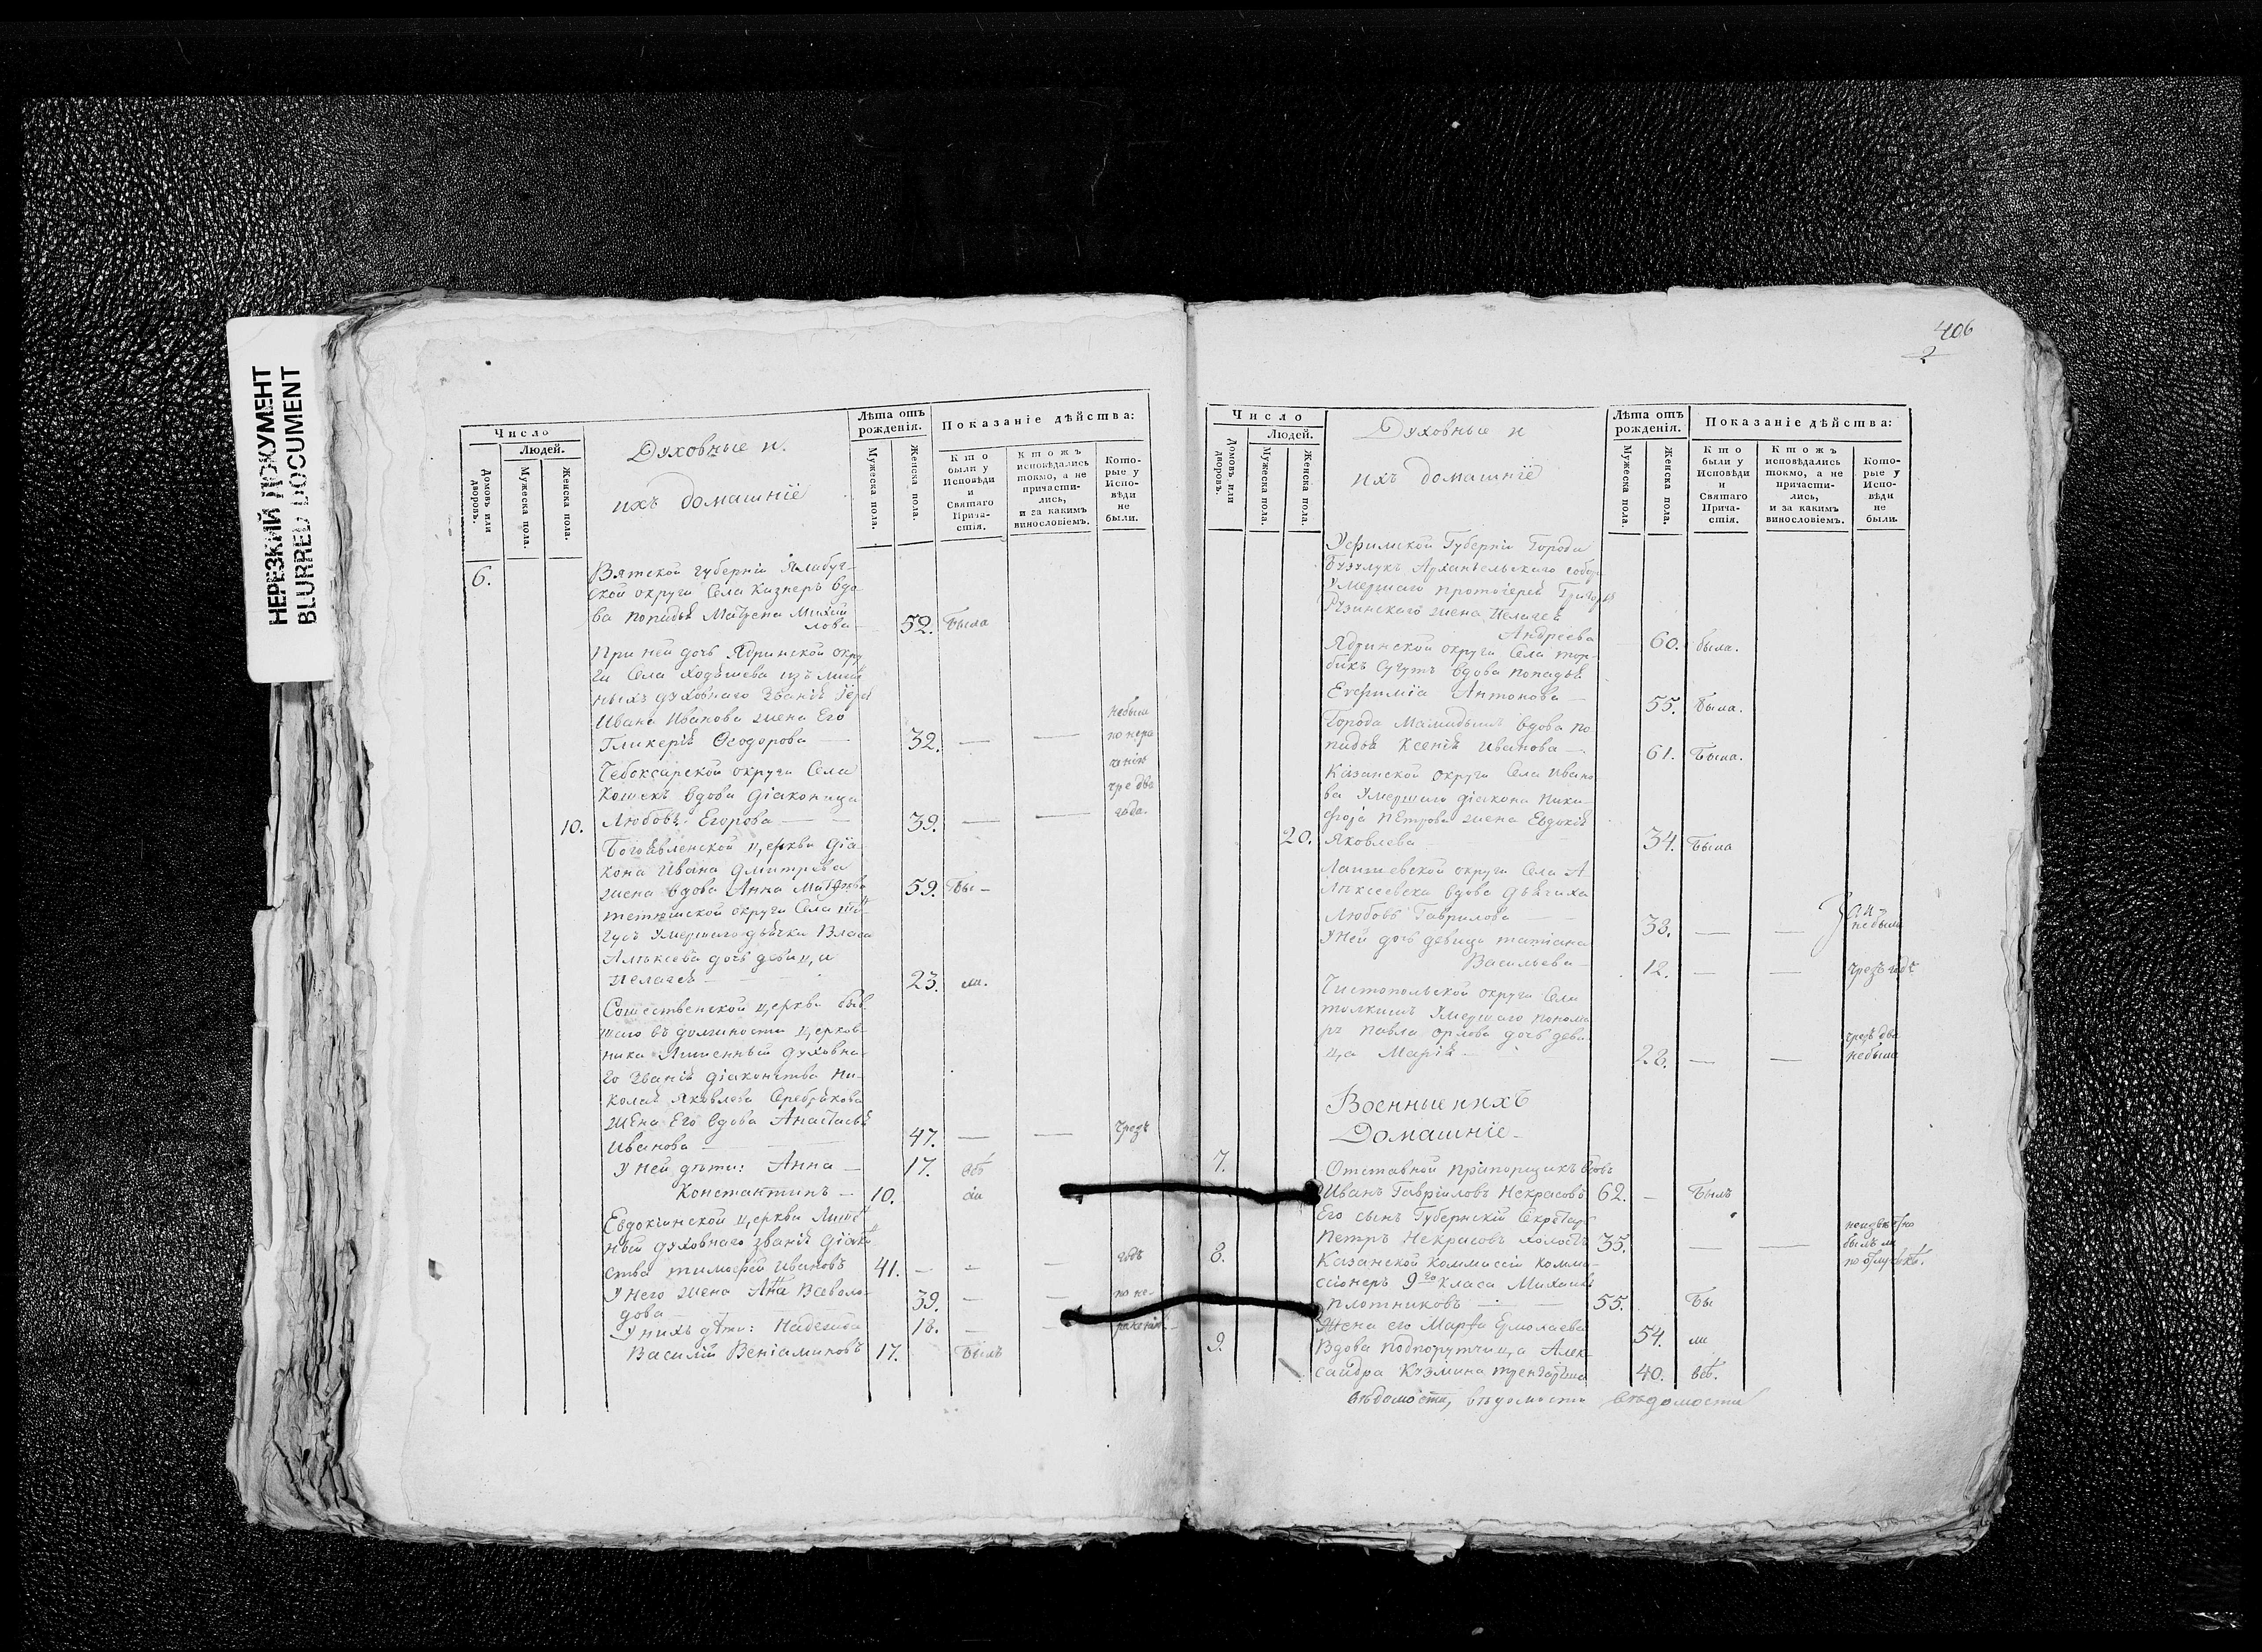 НЕРЕЗКИЙ ДОКУМЕНТ
BLURRED DOCUMENT
Число
Людей.
Домовъ или дворовъ.
Мужеска пола.
Женска пола.
Духовные и
ихъ домашніе
Лѣта отъ рожденія.
Мужеска пола.
Женска пола.
Показаніе дѣйства:
Кто были у Исповѣди и Святаго Прича-стія.
Ктожъ исповѣдались токмо, а не причасти-лись, и за какимъ винословіемъ.
Кото-рые у Испо-вѣди не были.
6. Вятской губерніи Елабуж-
ской округи Села Кизнеръ вдо-
ва попадья Матрена Михай
лова — 52. Была
При ней дочь Ядринской окру
ги Села Ходяшева изъ лише
ныхъ духовнаго Званія Іерея
Ивана Иванова жена Его
Гликерія Ѳеодорова — 32. — — небыли по нера
Чебоксарской округи Села
Кошекъ вдова Діаконица
10. Любовь Егорова — 39. — — года.
Богоявленской церкви Діа-
кона Ивана Дмитрева
жена вдова Анна Матѳева 59. Бы-
тетюшской округи Села
умершаго дьячка Власа
Алексѣева дочь девица
Пелагея — 23. ли.
Сошественской церкви быв
шаго въ должности церков-
ника Лишенный духовна-
го Званія діаконства Ни-
колая Яковлева Серебрякова
жена Его вдова Анастасья
Иванова — 47. — — чрезъ
У ней дѣти: Анна — 17. обѣ
Константинъ — 10.
Евдокіинской церкви Лише
ный духовнаго званія діако
ства тимоѳей Ивановъ 41. — — — годъ
У него жена Анна Всеволо-
дова — 39. — — по не-
У нихъ дѣти: Надежда 18. — — раженію
Василій Веніаминовъ 17. Былъ
406
2
Число
Людей.
Домовъ или дворовъ.
Мужеска пола.
Женска пола.
Духовные и
ихъ домашніе
Лѣта отъ рожденія.
Мужеска пола.
Женска пола.
Показаніе дѣйства:
Кто были у Исповѣди и Святаго Прича-стія.
Ктожъ исповѣдались токмо, а не причасти-лись, и за какимъ винословіемъ.
Кото-рые у Испо-вѣди не были.
Уфимской Губерніи Города
Бузулукъ Архангельскаго собора
умершаго протоіерея Григорія
Рузинскаго жена Пелагея
Андреева 60. была.
Ядринской округи Села тор-
вдова попадья
Евфимія Антонова — 55. была.
Города Мамадышъ вдова по
падья Ксенія Иванова — 61. Была.
Казанской округи Села Ивано
ва умершаго діакона Ники-
фора Петрова жена Евдокія
20. Яковлева 34. Была
Лаишевской округи Села А
лѣксеевска вдова дьячиха
Любовь Гаврилова — 33. — — небыли
У ней дочь девица татіана
Васильева — 12. — — чрезъ годъ
Чистопольской округи Села
толкишъ умершаго понома
ря Павла Орлова дочь деви-
ца Марія — 28. — — чрезъ два небыла
Военные и ихъ
Домашніе
7. Отставной прапорщикъ вдовъ
Иванъ Гавріиловъ Некрасовъ 62. — Былъ
Его сынъ Губернскій Секретарь
Петръ Некрасовъ холостъ 35. — — неизвѣстно былъ ли
8. Казанской Коммисіи Комми-
сіонеръ 9го класа Михаилъ
Плотниковъ — 55. Бы
Жена его Марѳа Ермолаева 54. ли
9. Вдова подпорутчица Алек-
сандра Кузмина 40. всѣ.
вѣдомости, вѣдомости вѣдомости